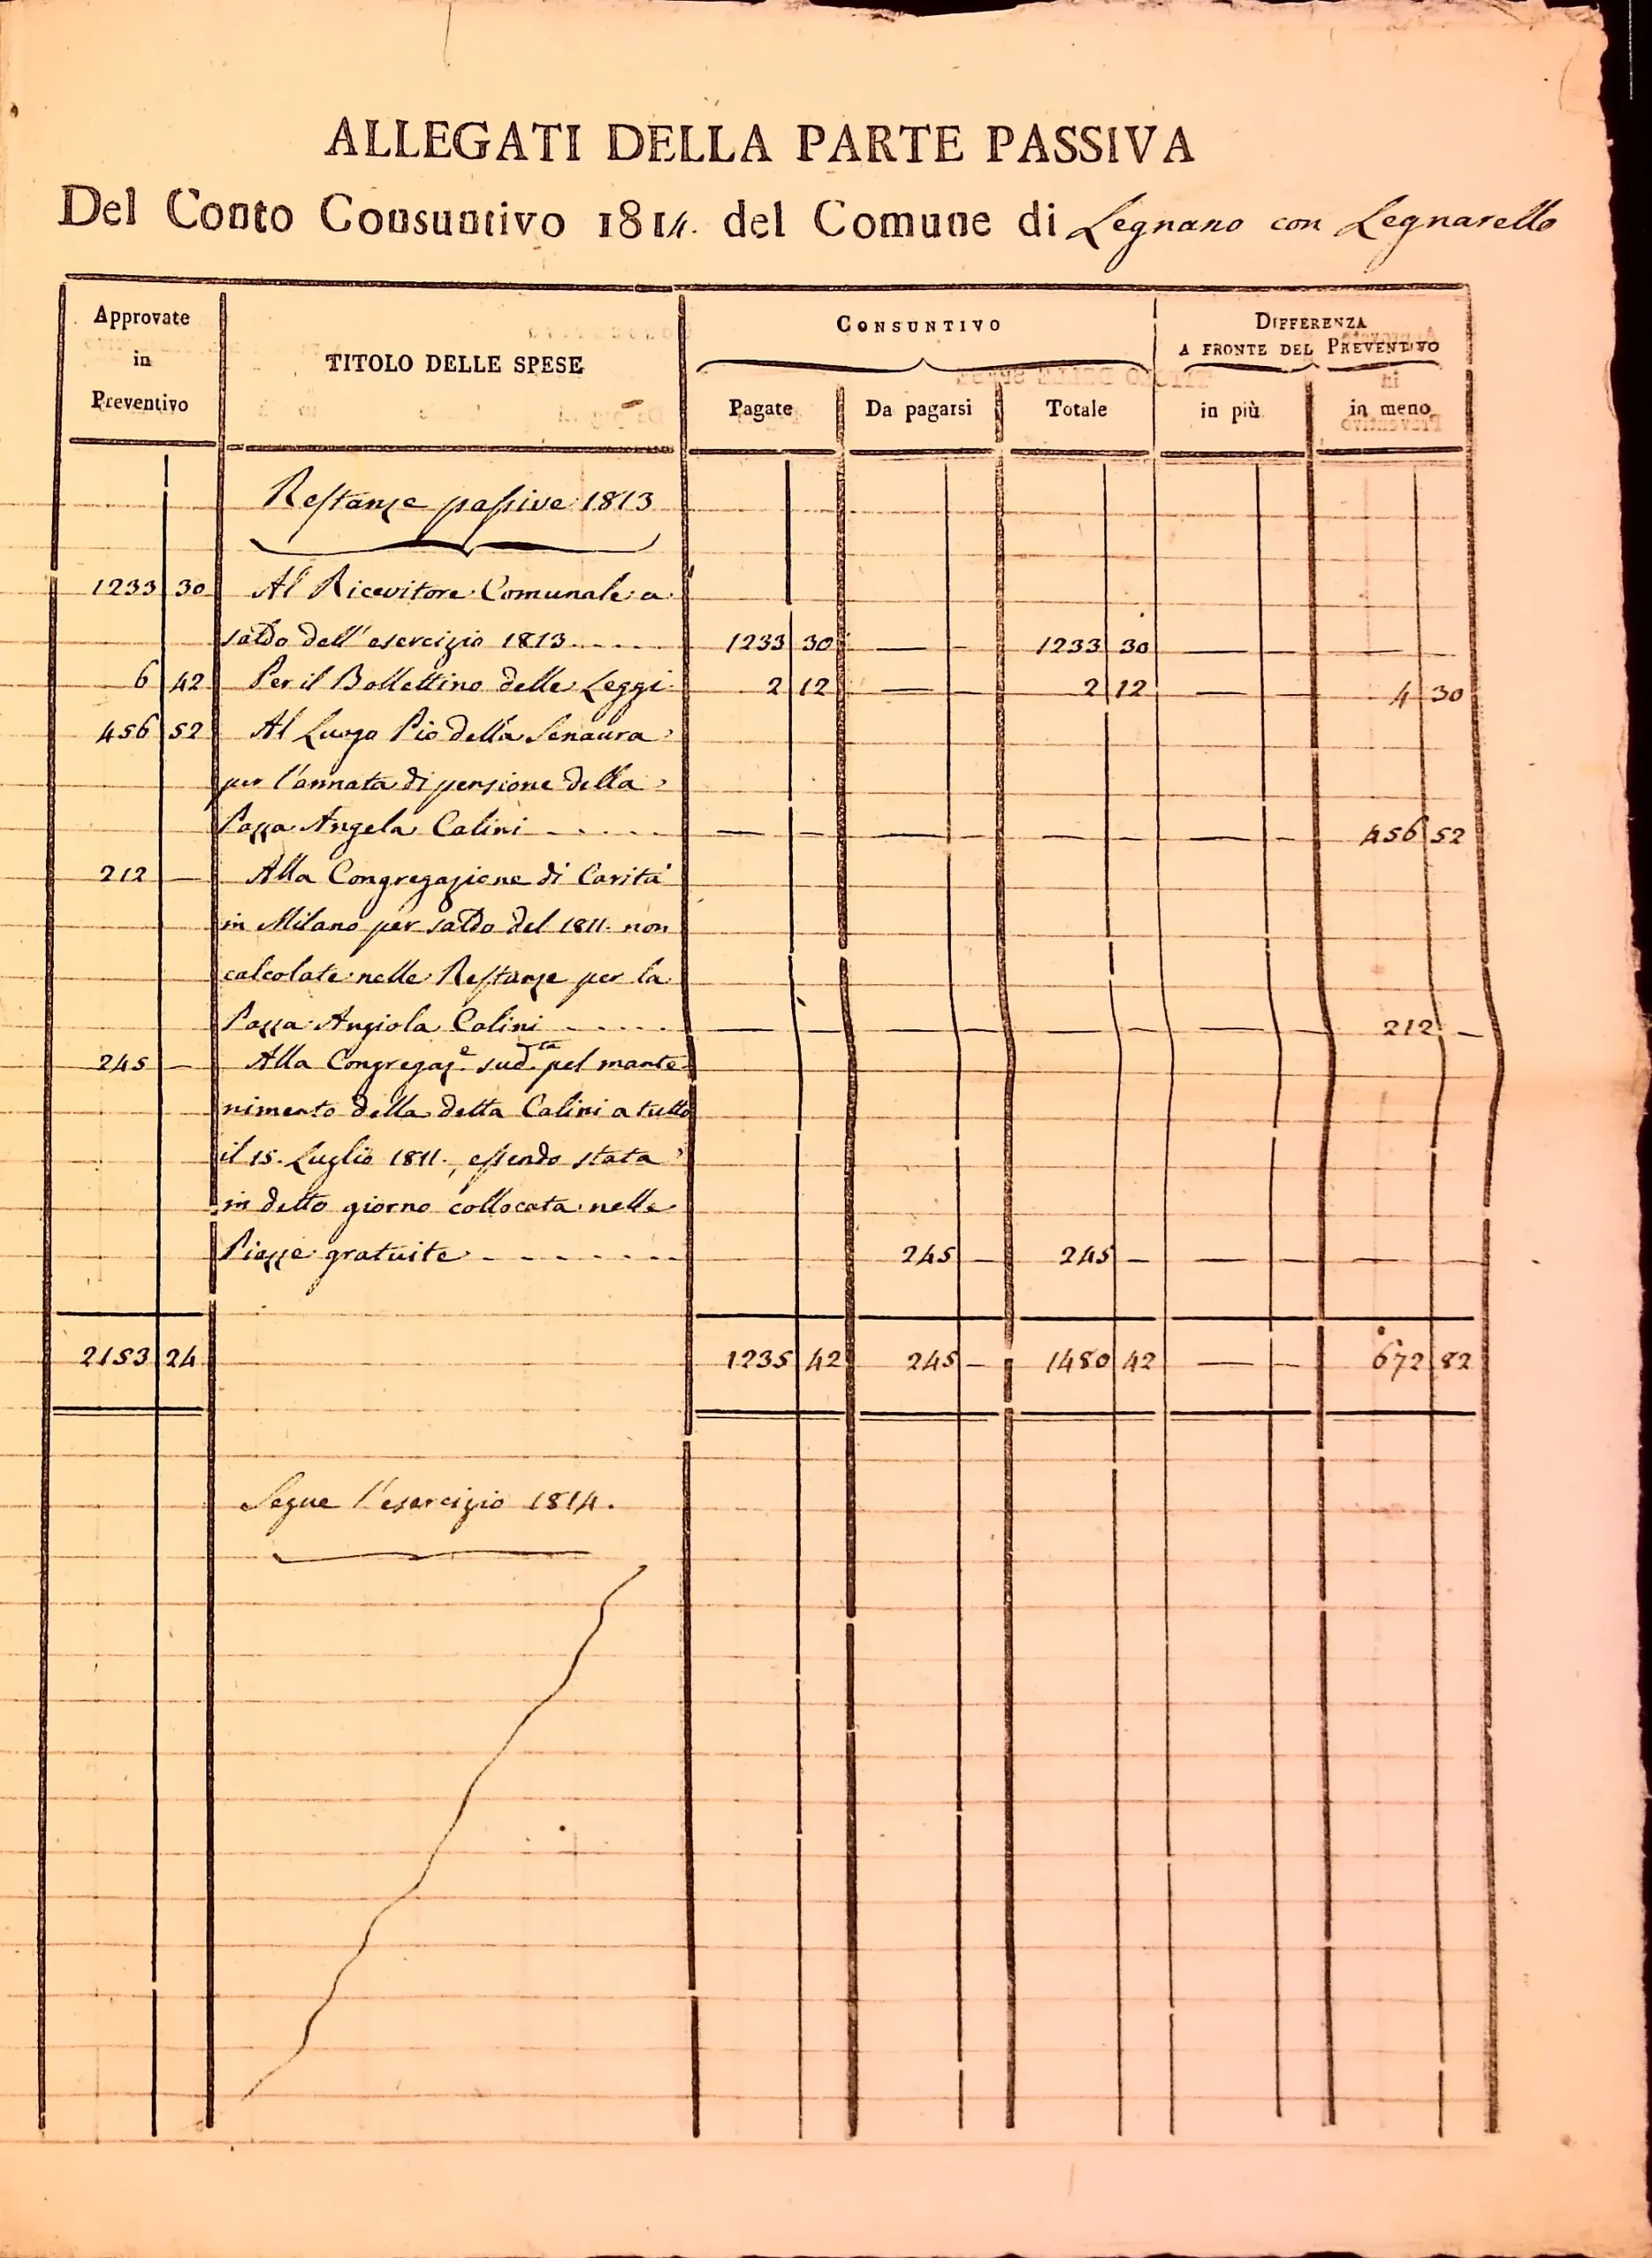 ALLEGATI DELLA PARTE PASSIVA
Del Conto Consuntivo 1814. del Comune di Legnano con Legnarello
Approvate in Preventivo
TITOLO DELLE SPESE
CONSUNTIVO
DIFFERENZA
A FRONTE DEL PREVENTIVO
Pagate Da pagarsi Totale in più in meno
Restanze passive 1813
1233 30 Al Ricevitore Comunale a
saldo dell'esercizio 1813..... 1233 30 — — 1233 30 — — — —
6 42 Per il Bollettino delle Leggi 2 12 — — 2 12 — — 4 30
456 52 Al Luogo Pio della Senaura
per l'annata di pensione della
Pazza Angela Calini ..... — — — — — — — — 456 52
212 — Alla Congregazione di Carità
in Milano per saldo del 1811. non
calcolate nelle Restanze per la
Pazza Angiola Calini ..... — — — — — — — — 212 —
245 — Alla Congregaz.e sud.ta pel mante
nimento della detta Calini a tutto
il 15. Luglio 1811., essendo stata
in detto giorno collocata nelle
Piazze gratuite - - - - - - - - 245 — 245 — — — — —
2153 24 1235 42 245 — 1480 42 — — 672 82
Segue l'esercizio 1814.